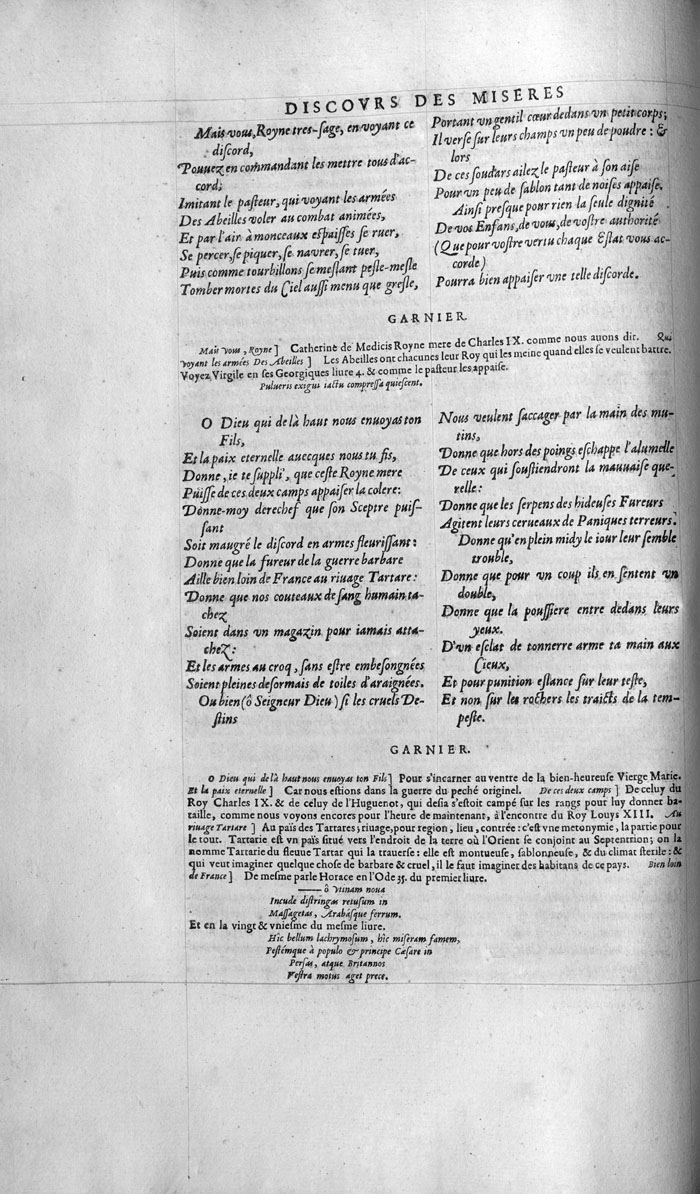 DISCOVRS DES MISERES
Mais vous, Royne tres-sage, en voyant ce
discord,
Pouuez en commandant les mettre tous d'ac-
cord;
Imitant le pasteur, qui voyant les armées
Des Abeilles voler au combat animées,
Et par l'air à monceaux espaisses se ruer,
Se percer, se piquer, se navrer, se tuer,
Puis comme tourbillons se meslant pesle-mesle
Tomber mortes du Ciel aussi menu que gresle,
Portant vn gentil cœur dedans vn petit corps;
Il verse sur leurs champs vn peu de poudre : &
lors
De ces soudars ailez le pasteur à son aise
Pour vn peu de sablon tant de noises appaise.
Ainsi presque pour rien la seule dignité
De vos Enfans, de vous, de vostre authorité
(Que pour vostre vertu chaque Estat vous ac-
corde)
Pourra bien appaiser vne telle discorde.
GARNIER.
Mais vous, Royne] Catherine de Medicis Royne mere de Charles IX. comme nous auons dit. Qui
voyant les armées Des Abeilles] Les Abeilles ont chacunes leur Roy qui les meine quand elles se veulent battre.
Voyez Virgile en ses Georgiques liure 4. & comme le pasteur les appaise.
Pulueris exigui iactu compressa quiescent.
O Dieu qui de là haut nous enuoyas ton
Fils,
Et la paix eternelle auecques nous tu fis,
Donne, ie te suppli', que ceste Royne mere
Puisse de ces deux camps appaiser la colere:
Donne-moy derechef que son Sceptre puis-
sant
Soit maugré le discord en armes fleurissant:
Donne que la fureur de la guerre barbare
Aille bien loin de France au riuage Tartare:
Donne que nos couteaux de sang humain ta-
chez
Soient dans vn magazin pour iamais atta-
chez:
Et les armes au croq, sans estre embesongnées
Soient pleines desormais de toiles d'araignées.
Ou bien (ô Seigneur Dieu) si les cruels De-
stins
Nous veulent saccager par la main des mu-
tins,
Donne que hors des poings eschappe l'alumelle
De ceux qui soustiendront la mauuaise que-
relle:
Donne que les serpens des hideuses Fureurs
Agitent leurs cerueaux de Paniques terreurs.
Donne qu'en plein midy le iour leur semble
trouble,
Donne que pour vn coup ils en sentent vn
double,
Donne que la poussiere entre dedans leurs
yeux.
D'vn esclat de tonnerre arme ta main aux
Cieux,
Et pour punition eslance sur leur teste,
Et non sur les rochers les traicts de la tem-
peste.
GARNIER.
O Dieu qui de là haut nous enuoyas ton Fils] Pour s'incarner au ventre de la bien-heureuse Vierge Marie.
Et la paix eternelle] Car nous estions dans la guerre du peché originel. De ces deux camps] De celuy du
Roy Charles IX. & de celuy de l'Huguenot, qui desia s'estoit campé sur les rangs pour luy donner ba-
taille, comme nous voyons encores pour l'heure de maintenant, à l'encontre du Roy Louys XIII. Au
riuage Tartare] Au païs des Tartares; riuage, pour region, lieu, contrée: c'est vne metonymie, la partie pour
le tout. Tartarie est vn païs situé vers l'endroit de la terre où l'Orient se conjoint au Septentrion; on la
nomme Tartarie du fleuue Tartar qui la trauerse: elle est montueuse, sablonneuse, & du climat sterile: &
qui veut imaginer quelque chose de barbare & cruel, il le faut imaginer des habitans de ce pays. Bien loin
de France] De mesme parle Horace en l'Ode 35. du premier liure.
—— ô vtinam noua
Incude distringas retusum in
Massagetas, Arabásque ferrum.
Et en la vingt & vniesme du mesme liure.
Hic bellum lachrymosum, hic miseram famem,
Pestémque à populo & principe Cæsare in
Persas, atque Britannos
Vestra motus aget prece.